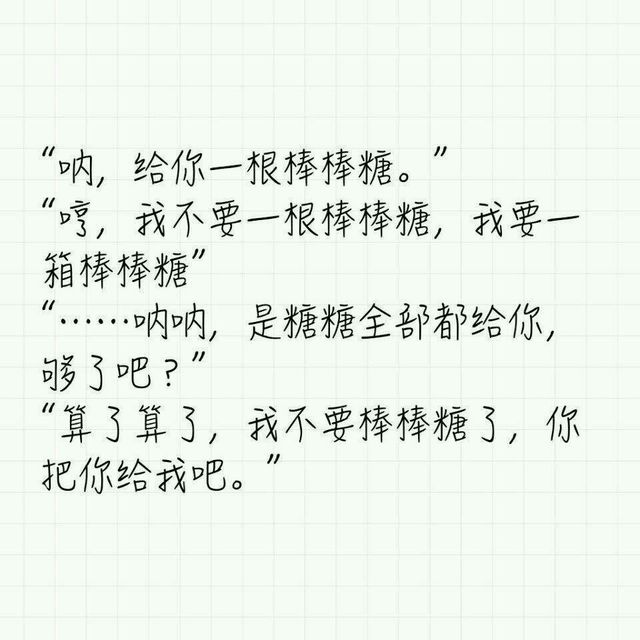 “呐，给你一根棒棒糖。”
“哼，我不要一根棒棒糖，我要一
箱棒棒糖”
“……呐呐，是糖糖全部都给你，
够了吧？”
“算了算了，我不要棒棒糖了，你
把你给我吧。”